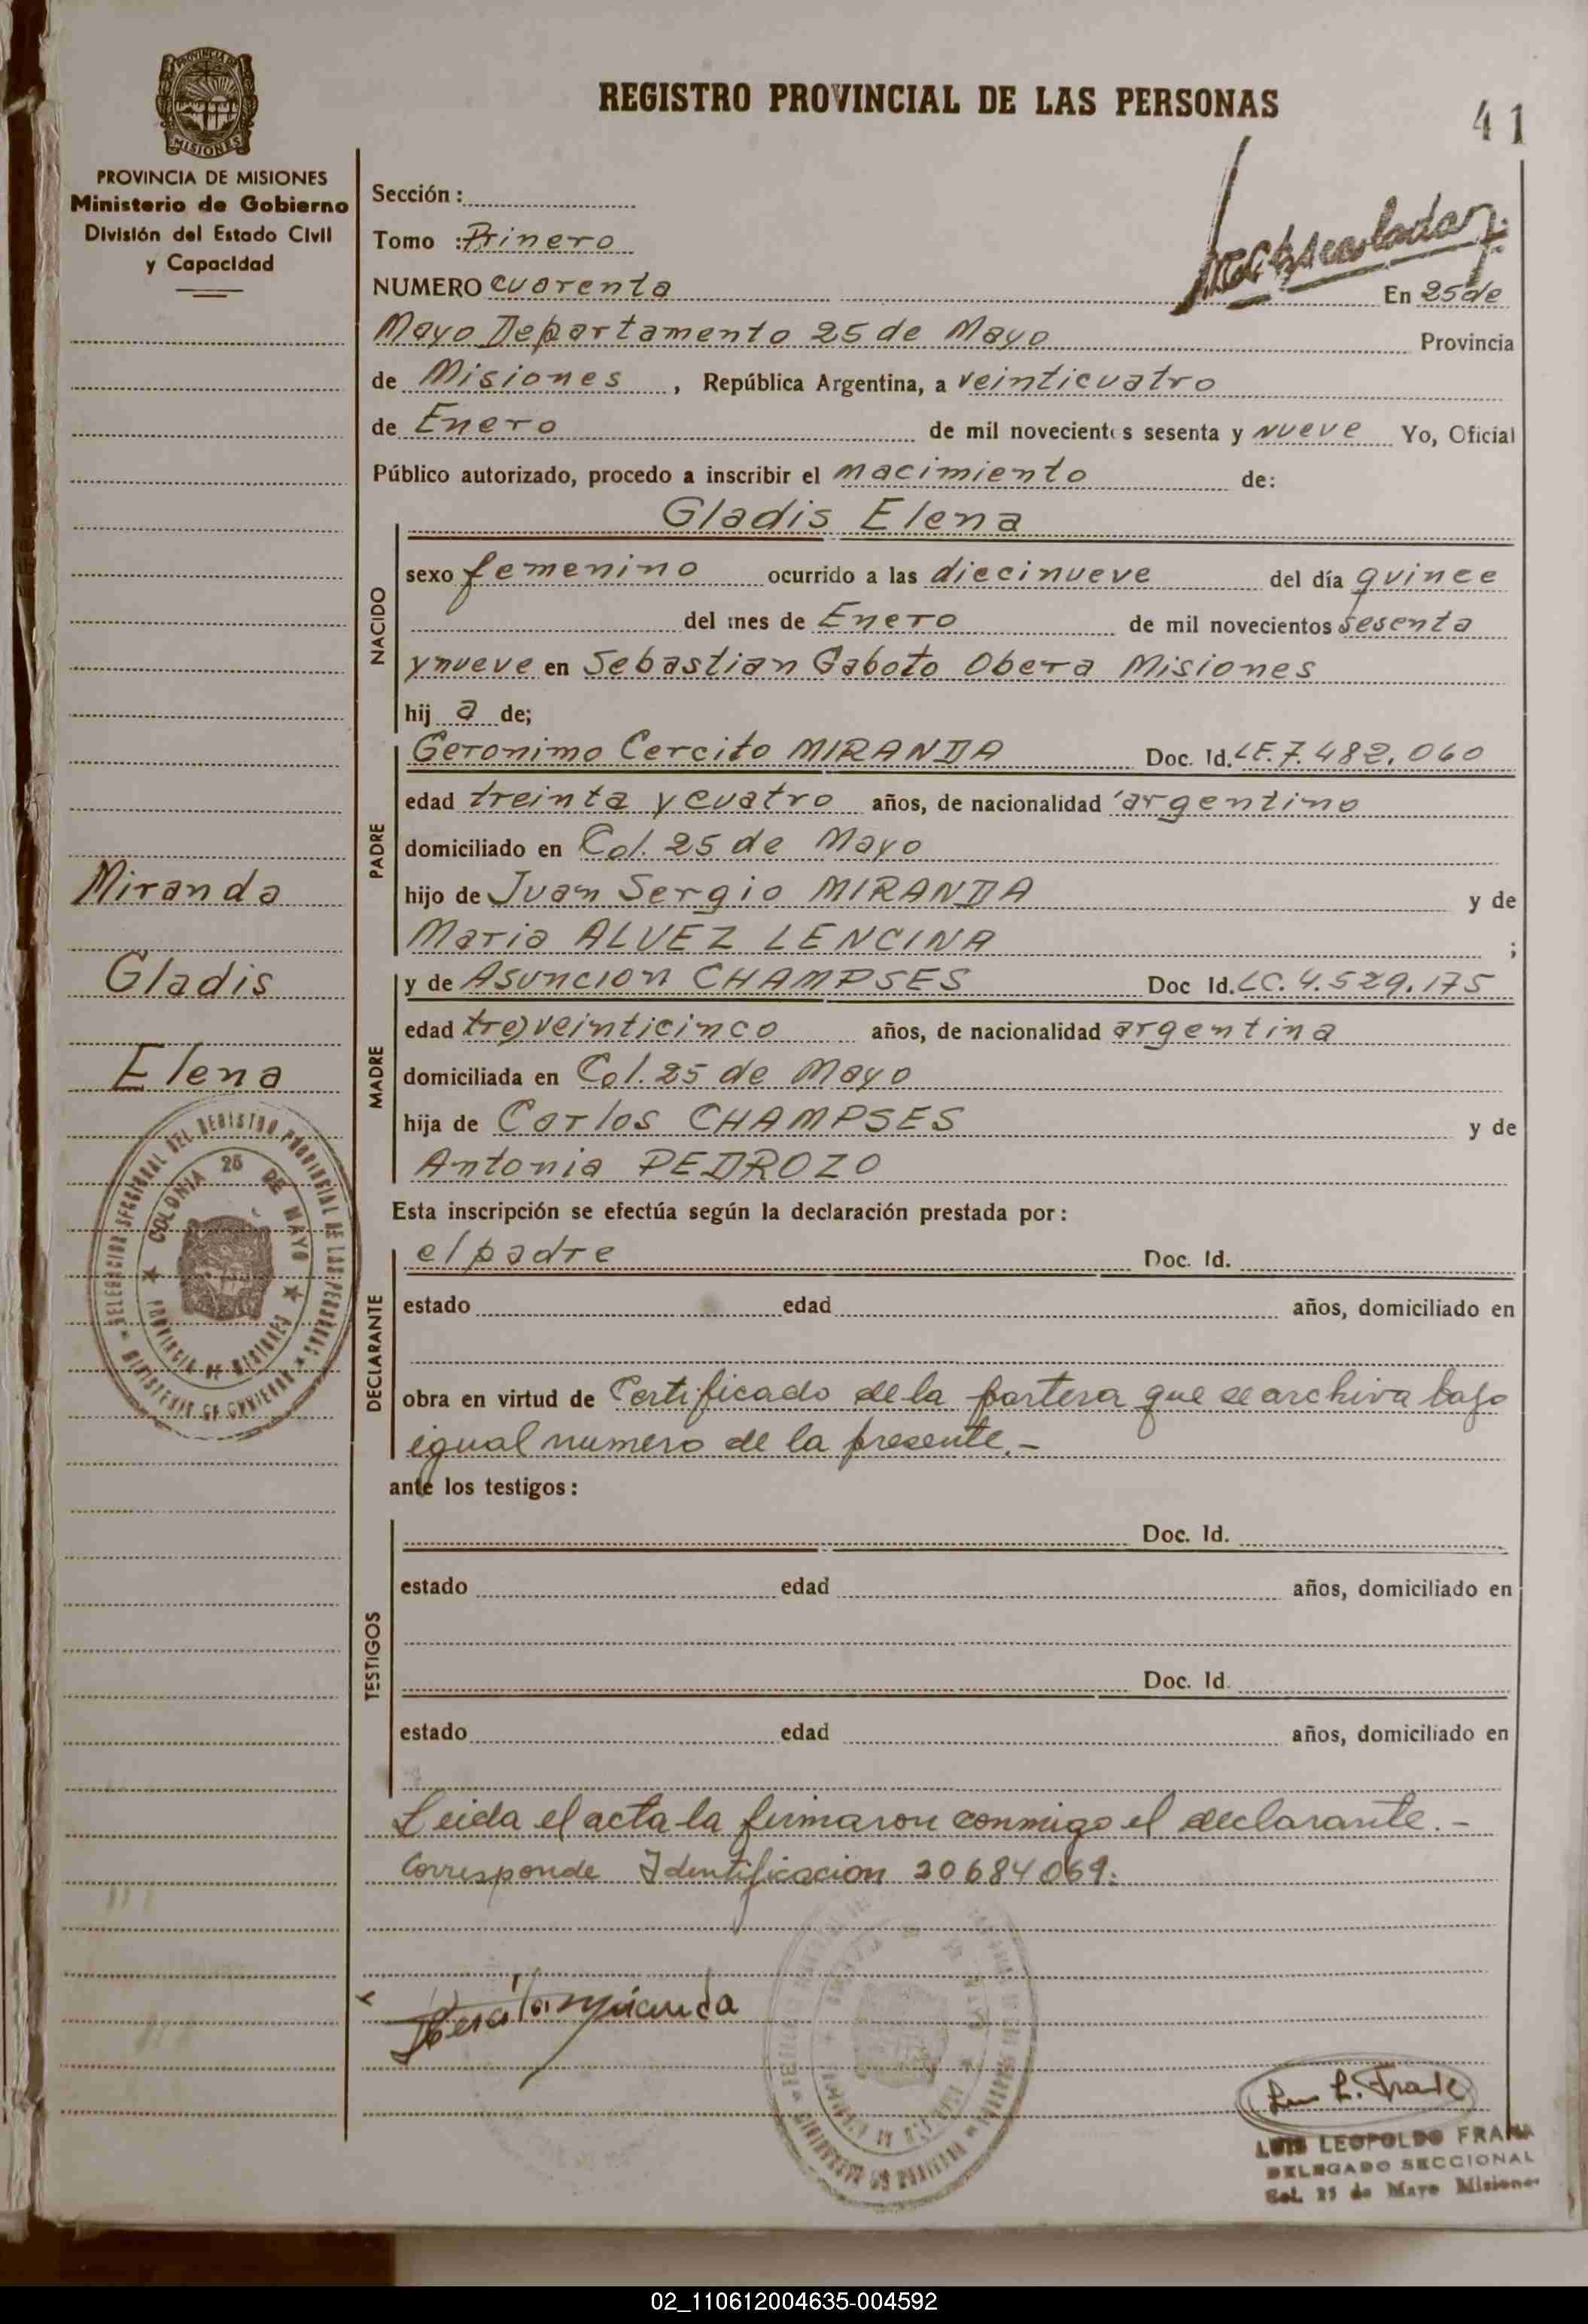 REGISTRO PROVINCIAL DE LAS PERSONAS
41
PROVINCIA DE MISIONES
Ministerio de Gobierno
División del Estado Civil
y Capacidad
Sección :
Tomo : Primero
NUMERO cuarenta En 25 de
Mayo Departamento 25 de Mayo Provincia
de Misiones , República Argentina, a veinticuatro
de Enero de mil novecientos sesenta y nueve Yo, Oficial
Público autorizado, procedo a inscribir el nacimiento de:
Gladis Elena
NACIDO
sexo femenino ocurrido a las diecinueve del día quince
del mes de Enero de mil novecientos sesenta
y nueve en Sebastian Gaboto Obera Misiones
hij a de;
PADRE
Geronimo Cercito MIRANDA Doc. Id. LE.7.482.060
edad treinta y cuatro años, de nacionalidad argentino
domiciliado en Col. 25 de Mayo
hijo de Juan Sergio MIRANDA y de
Maria ALVEZ LENCINA ;
MADRE
y de Asuncion CHAMPSES Doc Id. LC. 4.529.175
edad tre) veinticinco años, de nacionalidad argentina
domiciliada en Col. 25 de Mayo
hija de Carlos CHAMPSES y de
Antonia PEDROZO
Miranda
Gladis
Elena
DELEGACION SECCIONAL DEL REGISTRO PROVINCIAL DE LAS PERSONAS
MINISTERIO DE GOBIERNO
COLONIA 25 DE MAYO
PROVINCIA DE MISIONES
Esta inscripción se efectúa según la declaración prestada por :
DECLARANTE
el padre Doc. Id.
estado edad años, domiciliado en
obra en virtud de Certificado de la partera que se archiva bajo
igual numero de la presente.-
ante los testigos :
TESTIGOS
Doc. Id.
estado edad años, domiciliado en
Doc. Id.
estado edad años, domiciliado en
Leida el acta la firmaron conmigo el declarante.-
Corresponde Identificacion 20684069.
Miranda
LUIS LEOPOLDO FRANK
DELEGADO SECCIONAL
Col. 25 de Mayo Misiones
02_110612004635-004592